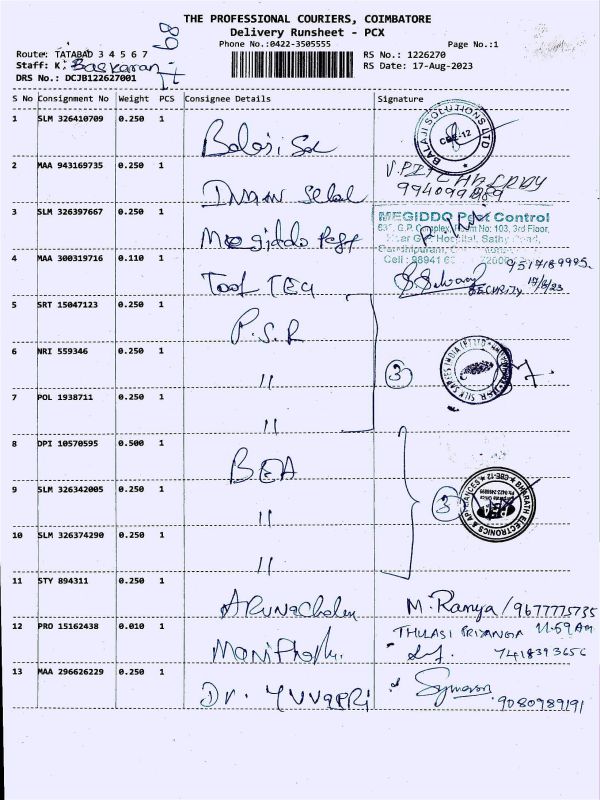 THE PROFESSIONAL COURIERS, COIMBATORE
Delivery Runsheet - PCX
Phone No.:0422-3505555
Page No.:1
Route: TATABAD 3 4 5 6 7
68
RS No.: 1226270
Staff: K. Baskaran
RS Date: 17-Aug-2023
DRS No.: DCJB122627001
S No Consignment No Weight PCS Consignee Details Signature
1 SLM 326410709 0.250 1 Balaji Sol
BALAJI SOLUTIONS LTD CBE-12
2 MAA 943169735 0.250 1
3 SLM 326397667 0.250 1 Megiddo Pest
MEGIDDO Pest Control
G.P. Complex, No: 103, 3rd Floor,
Hospital, Sathy Road,
Cell: 98941
4 MAA 300319716 0.110 1 Tool TEq
9517189995.
SECURITY 17/8/23
5 SRT 15047123 0.250 1 P.S.R
6 NRI 559346 0.250 1 "
3
7 POL 1938711 0.250 1 "
8 DPI 10570595 0.500 1 BEA
9 SLM 326342005 0.250 1 "
3
BHARATH ELECTRONICS & APPLIANCES CBE-12
10 SLM 326374290 0.250 1 "
11 STY 894311 0.250 1 Arunachalam M. Ramya / 9677775735
12 PRO 15162438 0.010 1 THULASI PRIYANGA 11-59 AM
7418393656
13 MAA 296626229 0.250 1 Dr. Yuvapri
9080989191